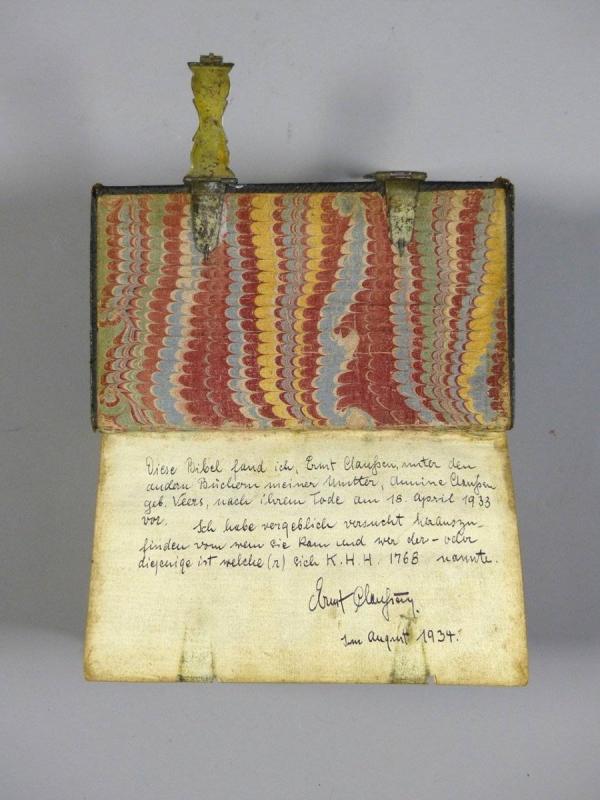 Diese Bibel fand ich, Ernst Claußen, unter den
andern Büchern meiner Mutter, Amine Claußen
geb. Veers, nach ihrem Tode am 18. April 1933
vor. Ich habe vergeblich versucht herauszu-
finden von wem sie kam und wer der- oder
diejenige ist welche(r) sich K.H.H. 1768 nannte.
Ernst Claußen.
Im August 1934.